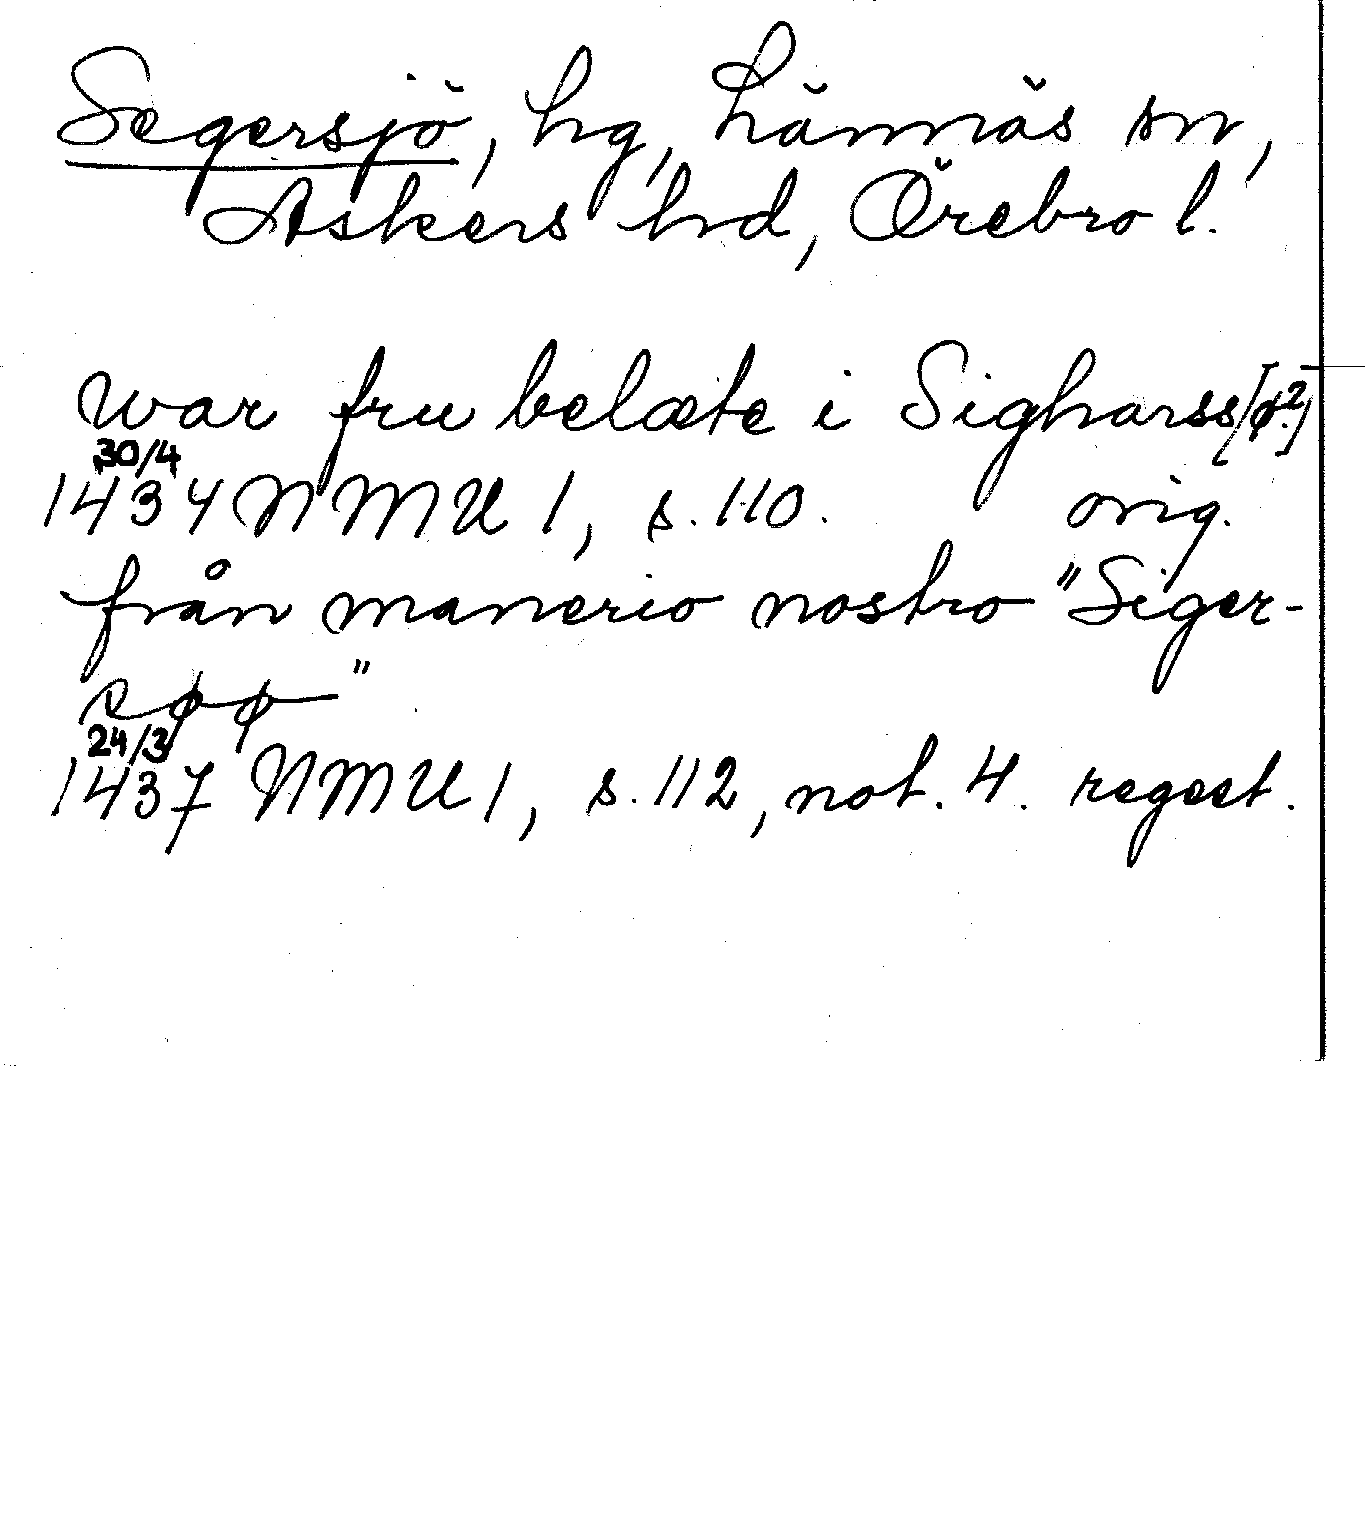 Segersjö, hg, Lännäs sn,
Askers hrd, Örebro l.
war fru belæte i Sigharss[ø?]
30/4
1434 NMU 1, s. 110. orig.
från manerio nostro "Siger-
søø"
24/3
1437 NMU 1, s. 112, not. 4. regest.